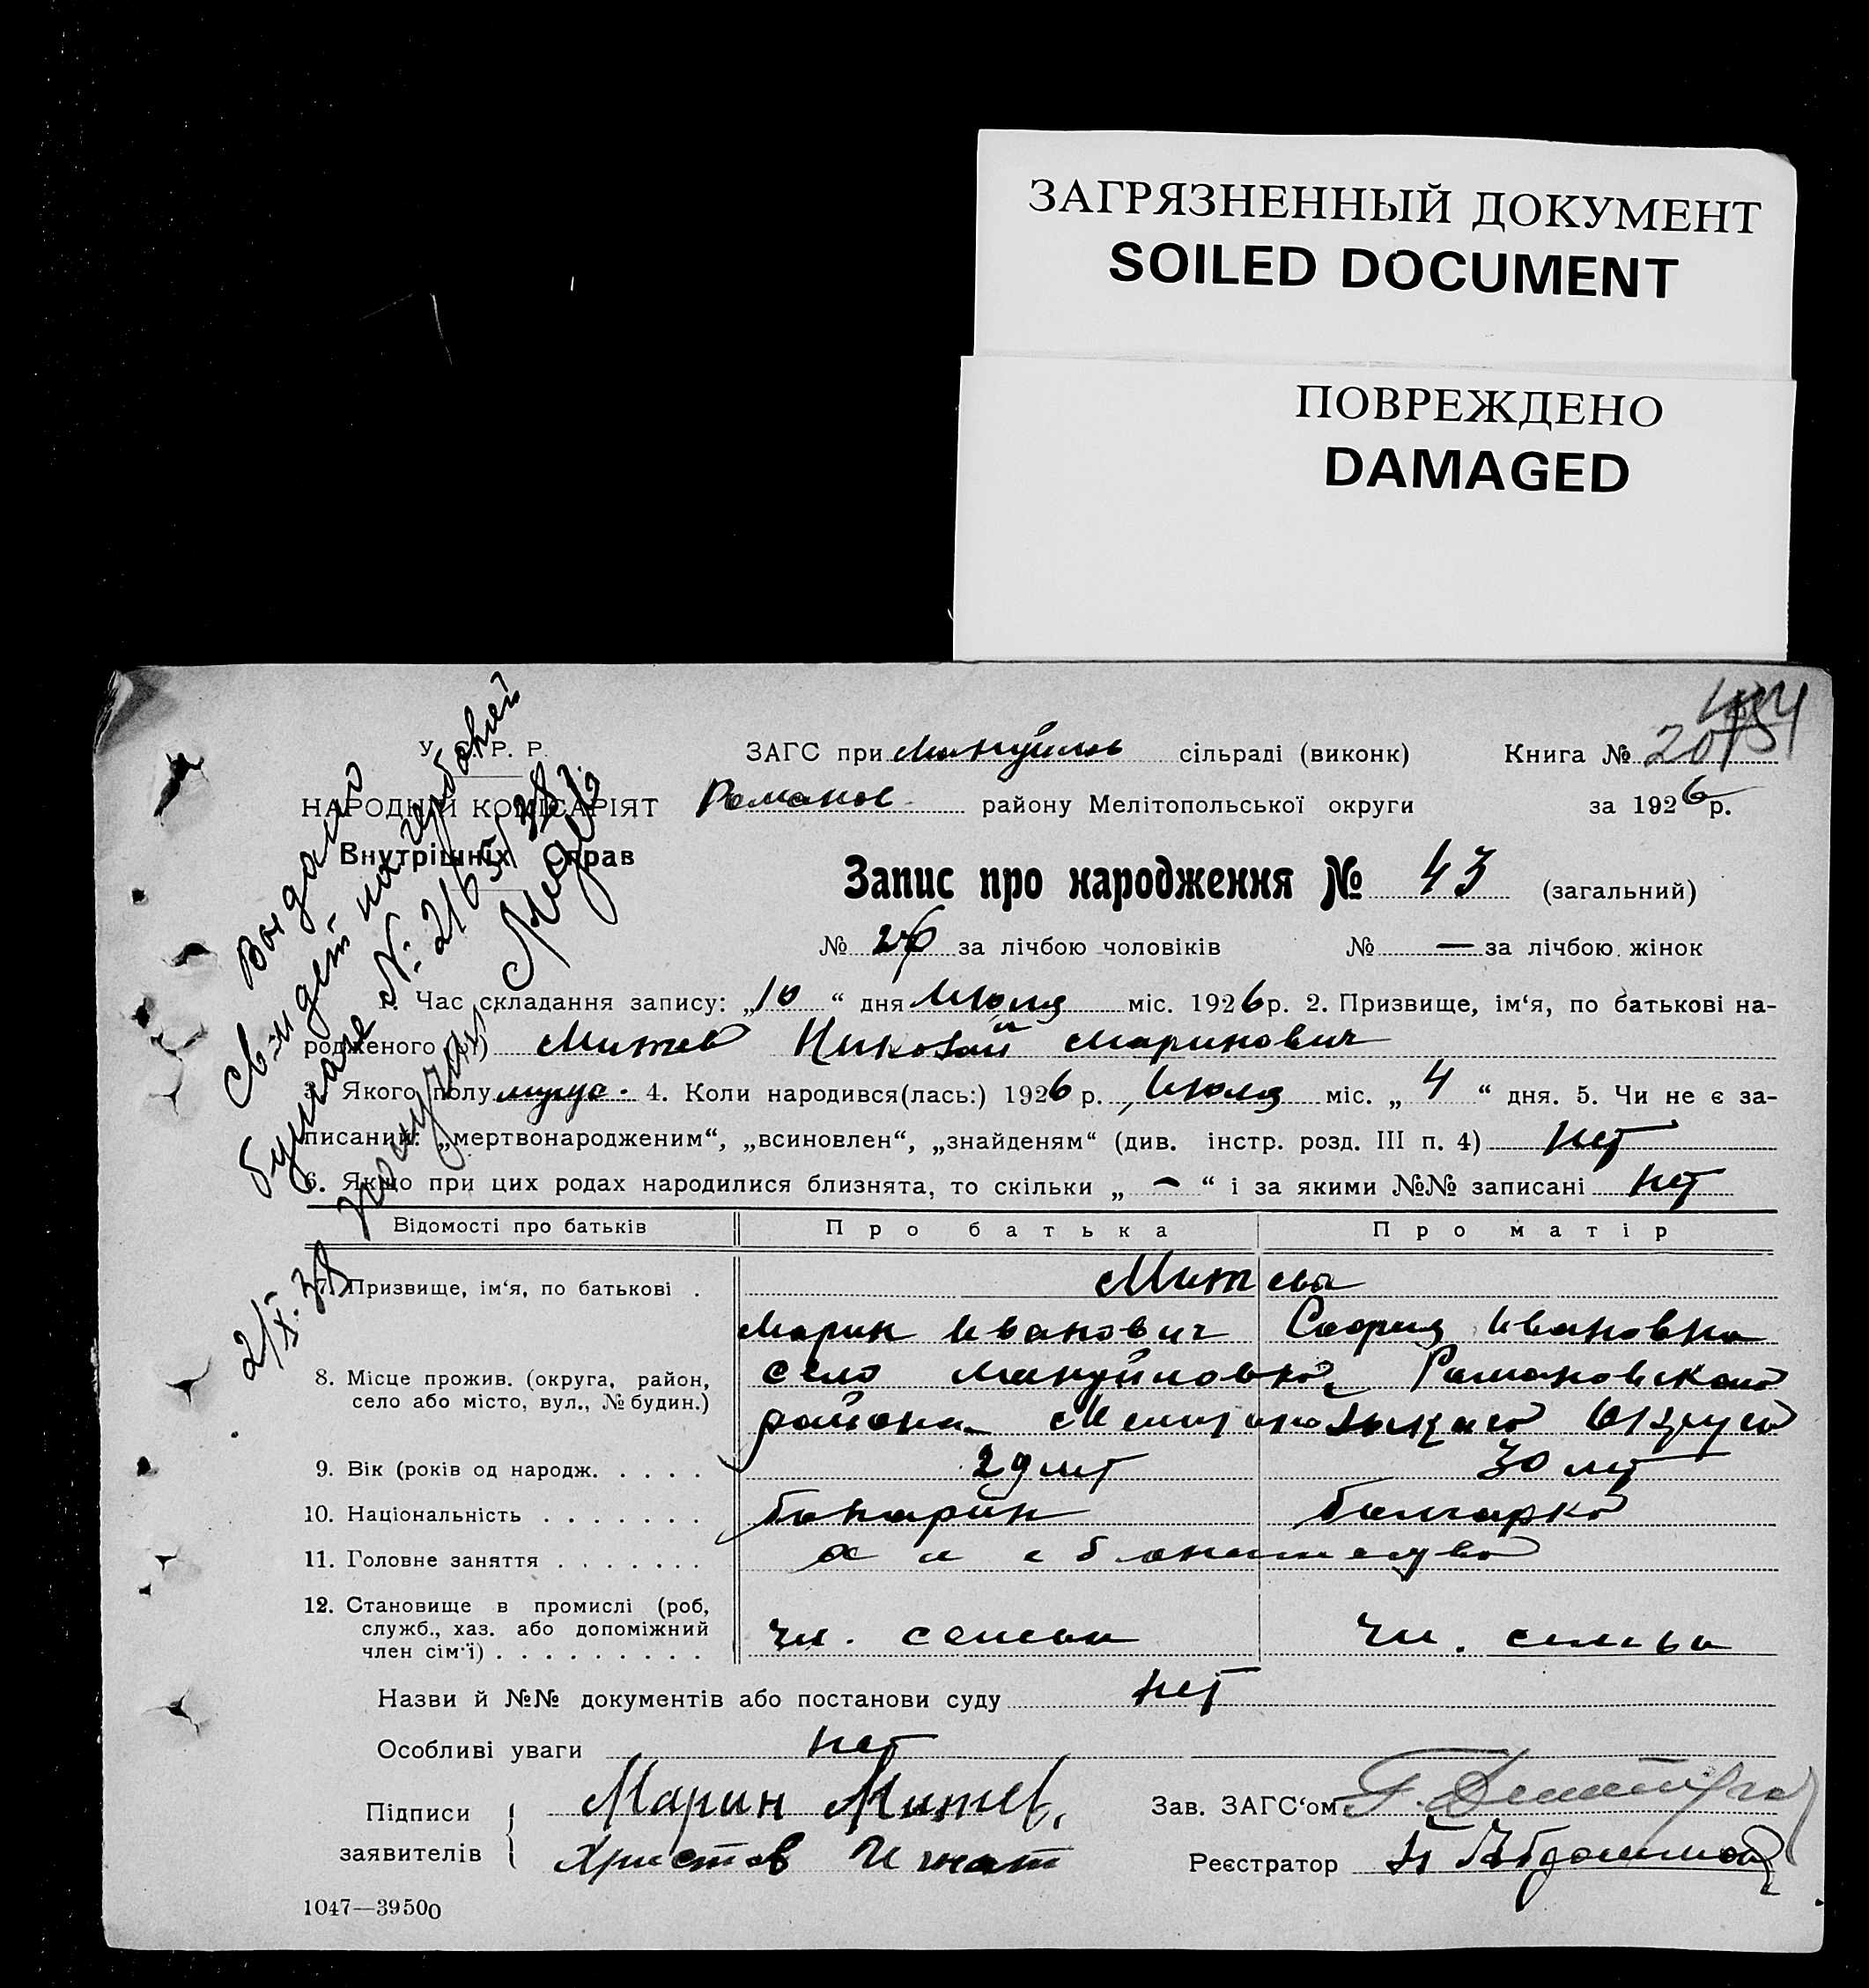 ЗАГРЯЗНЕННЫЙ ДОКУМЕНТ
SOILED DOCUMENT
ПОВРЕЖДЕНО
DAMAGED
У. С. Р. Р.
НАРОДНИЙ КОМІСАРІЯТ
Внутрішніх Справ
Выдано
Свидет на гербовой
бумаге №
получил
2/XI-38
ЗАГС при Мануйлов сільраді (виконк) Книга № 20
Романов районy Мелітопольської округи за 1926 р.
Запис про народження № 43 (загальний)
№ 26 за лічбою чоловіків № — за лічбою жінок
1. Час складання запису: „10“ дня Июля міс. 1926 р. 2. Призвище, ім‘я, по батькові на-
родженого (ої) Митев Николай Маринович
3. Якого полу мужс. 4. Коли народився(лась:) 1926 р. Июля міс. „4“ дня. 5. Чи не є за-
писаний: „мертвонародженим“, „всиновлен“, „знайденям“ (див. інстр. розд. III п. 4) нет
6. Якщо при цих родах народилися близнята, то скільки „ — “ і за якими №№ записані нет
Відомості про батьків Про батька Про матір
7. Призвище, ім‘я, по батькові . Митевы
Марин Иванович София Ивановна
8. Місце прожив. (округа, район, село Мануйловка, Романовского
село або місто, вул., № будин.) района Мелитопольского Округа
9. Вік (років од народж. . . . . 29 лет 30 лет
10. Національність . . . . . . . болгарин болгарка
11. Головне заняття . . . . . . . хлебопашество
12. Становище в промислі (роб,
служб., хаз. або допоміжний
член сім‘ї) . . . . . . . . . чл. семьи чл. семьи
Назви й №№ документів або постанови суду нет
Особливі уваги нет
Підписи Марин Митев, Зав. ЗАГС‘ом
заявителів Христов Игнат Реєстратор
1047—39500